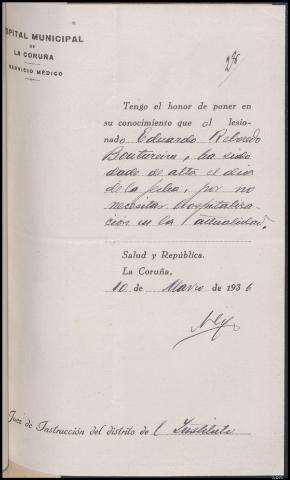 HOSPITAL MUNICIPAL
DE
LA CORUÑA
SERVICIO MÉDICO
Tengo el honor de poner en
su conocimiento que el lesio-
nado Eduardo
ha sido
dado de alta el dia
de la fecha, por no
necesitar hospitaliza-
ción en la actualidad.
Salud y República.
La Coruña,
10 de Marzo de 1936
Juez de Instrucción del distrito del Instituto